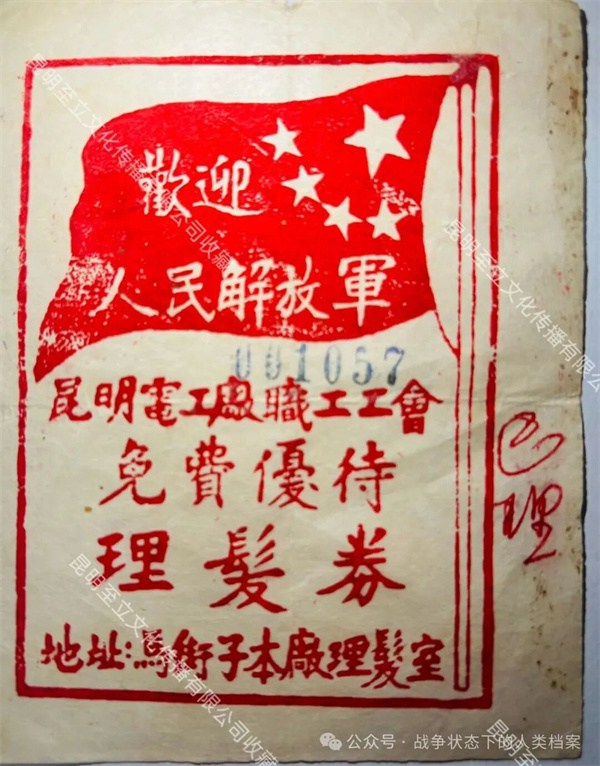 歡迎
人民解放軍
001057
昆明電工廠職工工會
免費優待
理髮券
地址:馬街子本廠理髮室
已理
昆明至立文化传播有限公司收藏
昆明至立文化传播有限公司
昆明至立文化传播有限公司收藏
公众号·战争状态下的人类档案